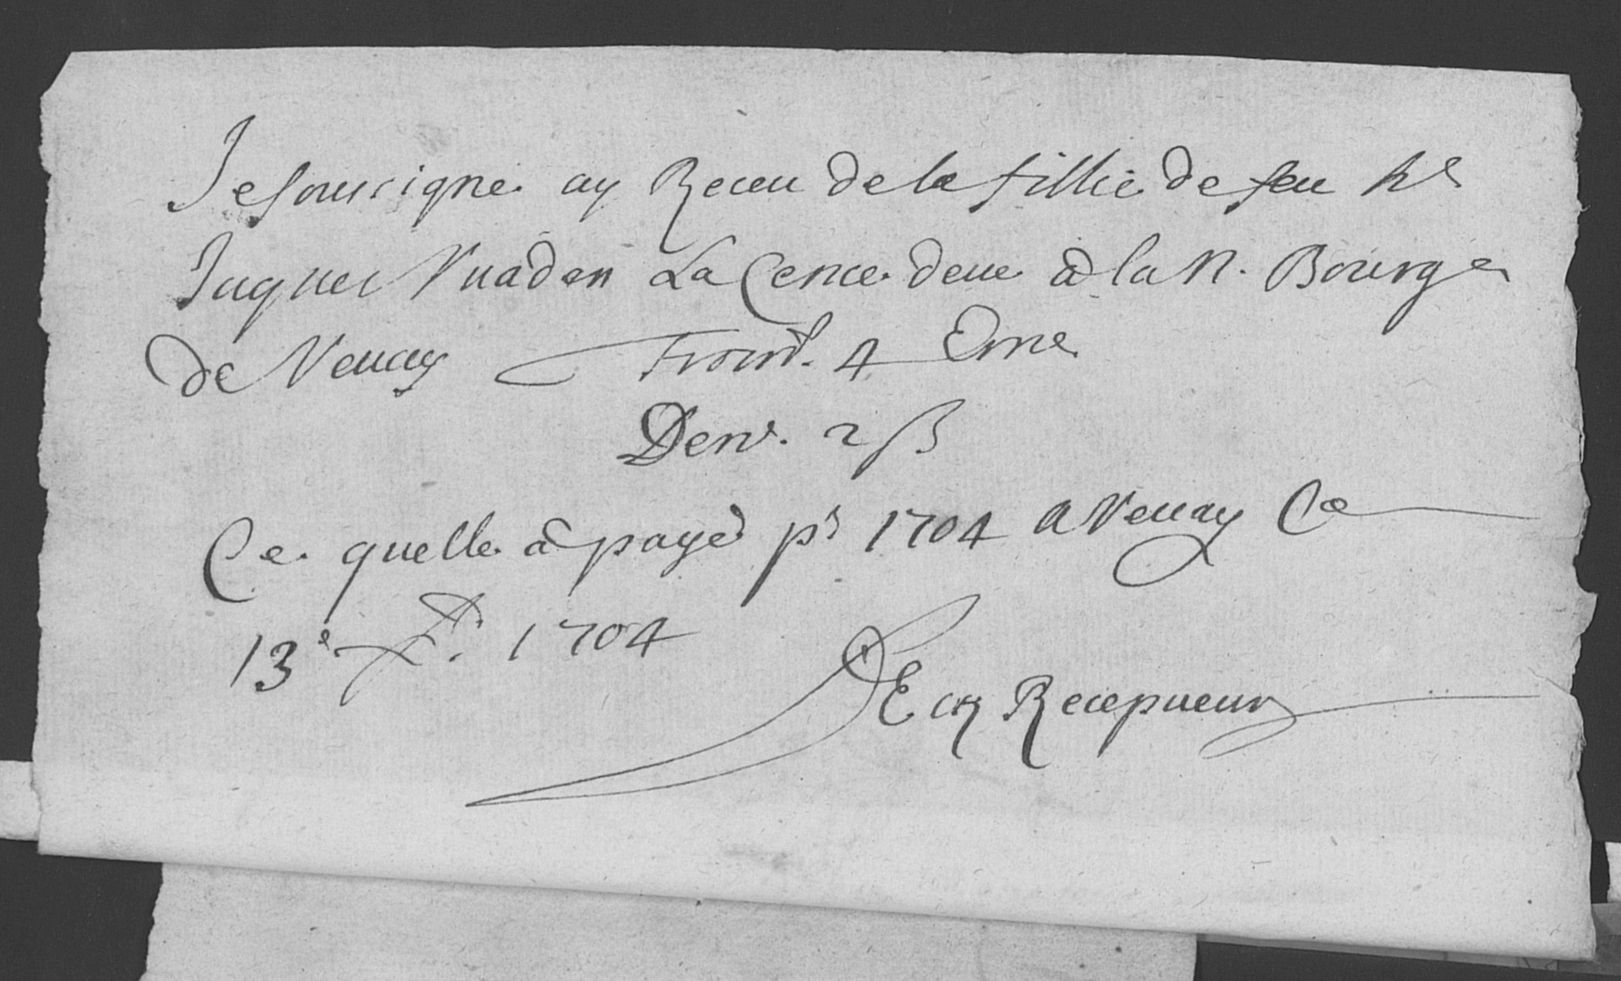 Je sousigne ay Receu de la fillie de feu hr
Jaques Vuaden La Cence deue à la N. Bourge
de Veuay From.t 4 Eme
Denr. 2 ß
Ce quelle à payé pr 1704 a Veuay Ce
13e Xbr. 1704
DEcry Recepueur